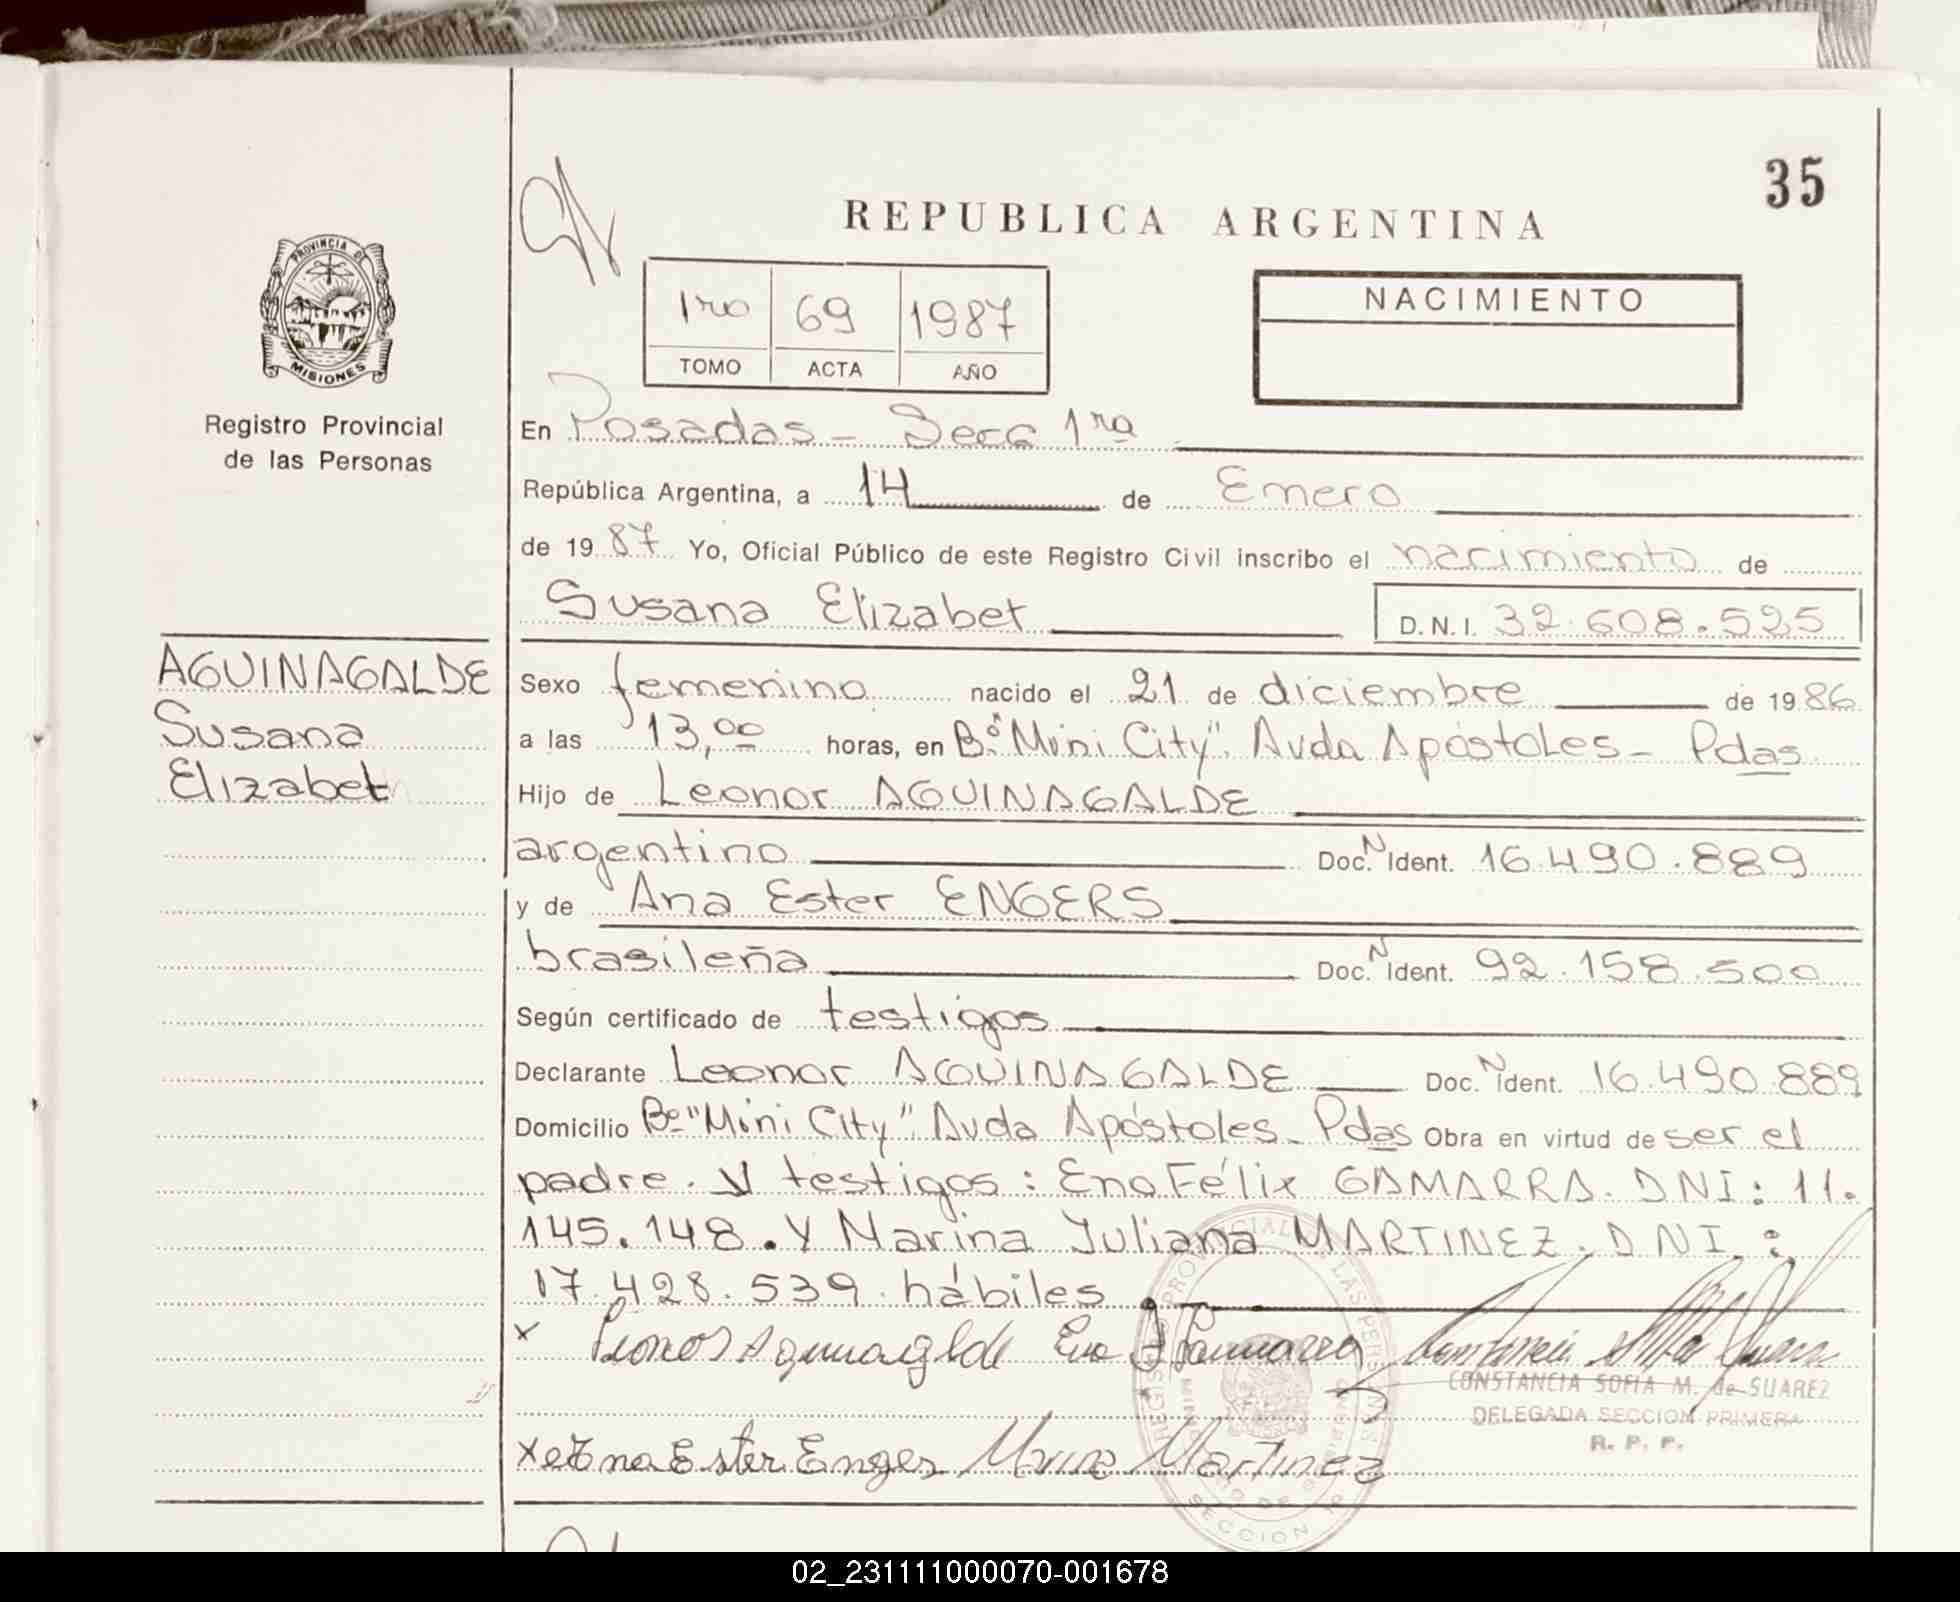 35
REPUBLICA ARGENTINA
PROVINCIA DE
MISIONES
1ro 69 1987
TOMO ACTA AÑO
NACIMIENTO
Registro Provincial
de las Personas
En Posadas - Secc 1ra
República Argentina, a 14 de Enero
de 1987 Yo, Oficial Público de este Registro Civil inscribo el nacimiento de
Susana Elizabet D.N.I. 32.608.525
AGUINAGALDE
Susana
Elizabet
Sexo femenino nacido el 21 de diciembre de 1986
a las 13,00 horas, en Bº "Mini City". Avda Apóstoles - Pdas
Hijo de Leonor AGUINAGALDE
argentino Doc. N Ident. 16.490.889
y de Ana Ester ENGERS
brasileña Doc. N Ident. 92.158.500
Según certificado de testigos
Declarante Leonor AGUINAGALDE Doc. N Ident. 16.490.889
Domicilio Bº "Mini City" Avda Apóstoles - Pdas Obra en virtud de ser el
padre. y testigos: Eno Félix GAMARRA. DNI: 11.
145.148. Y Marina Juliana MARTINEZ. DNI.:
17.428.539 hábiles
x Leonor Aguinagalde
CONSTANCIA SOFIA M. de SUAREZ
DELEGADA SECCION PRIMERA
R. P. P.
x Ana Ester Engers Martinez
SECCION 1ª
02_231111000070-001678